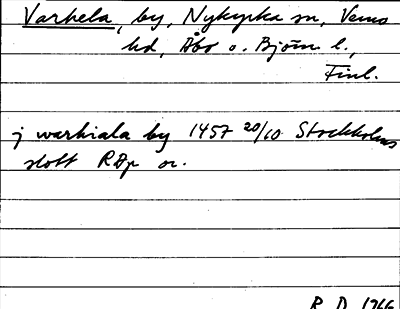 Varhela, by, Nykyrka sn, Vemo
hd, Åbo o. Björn. l.,
Finl.
j warhiala by 1457 20/10 Stockholms
slott RAp or.
R. D. 1966